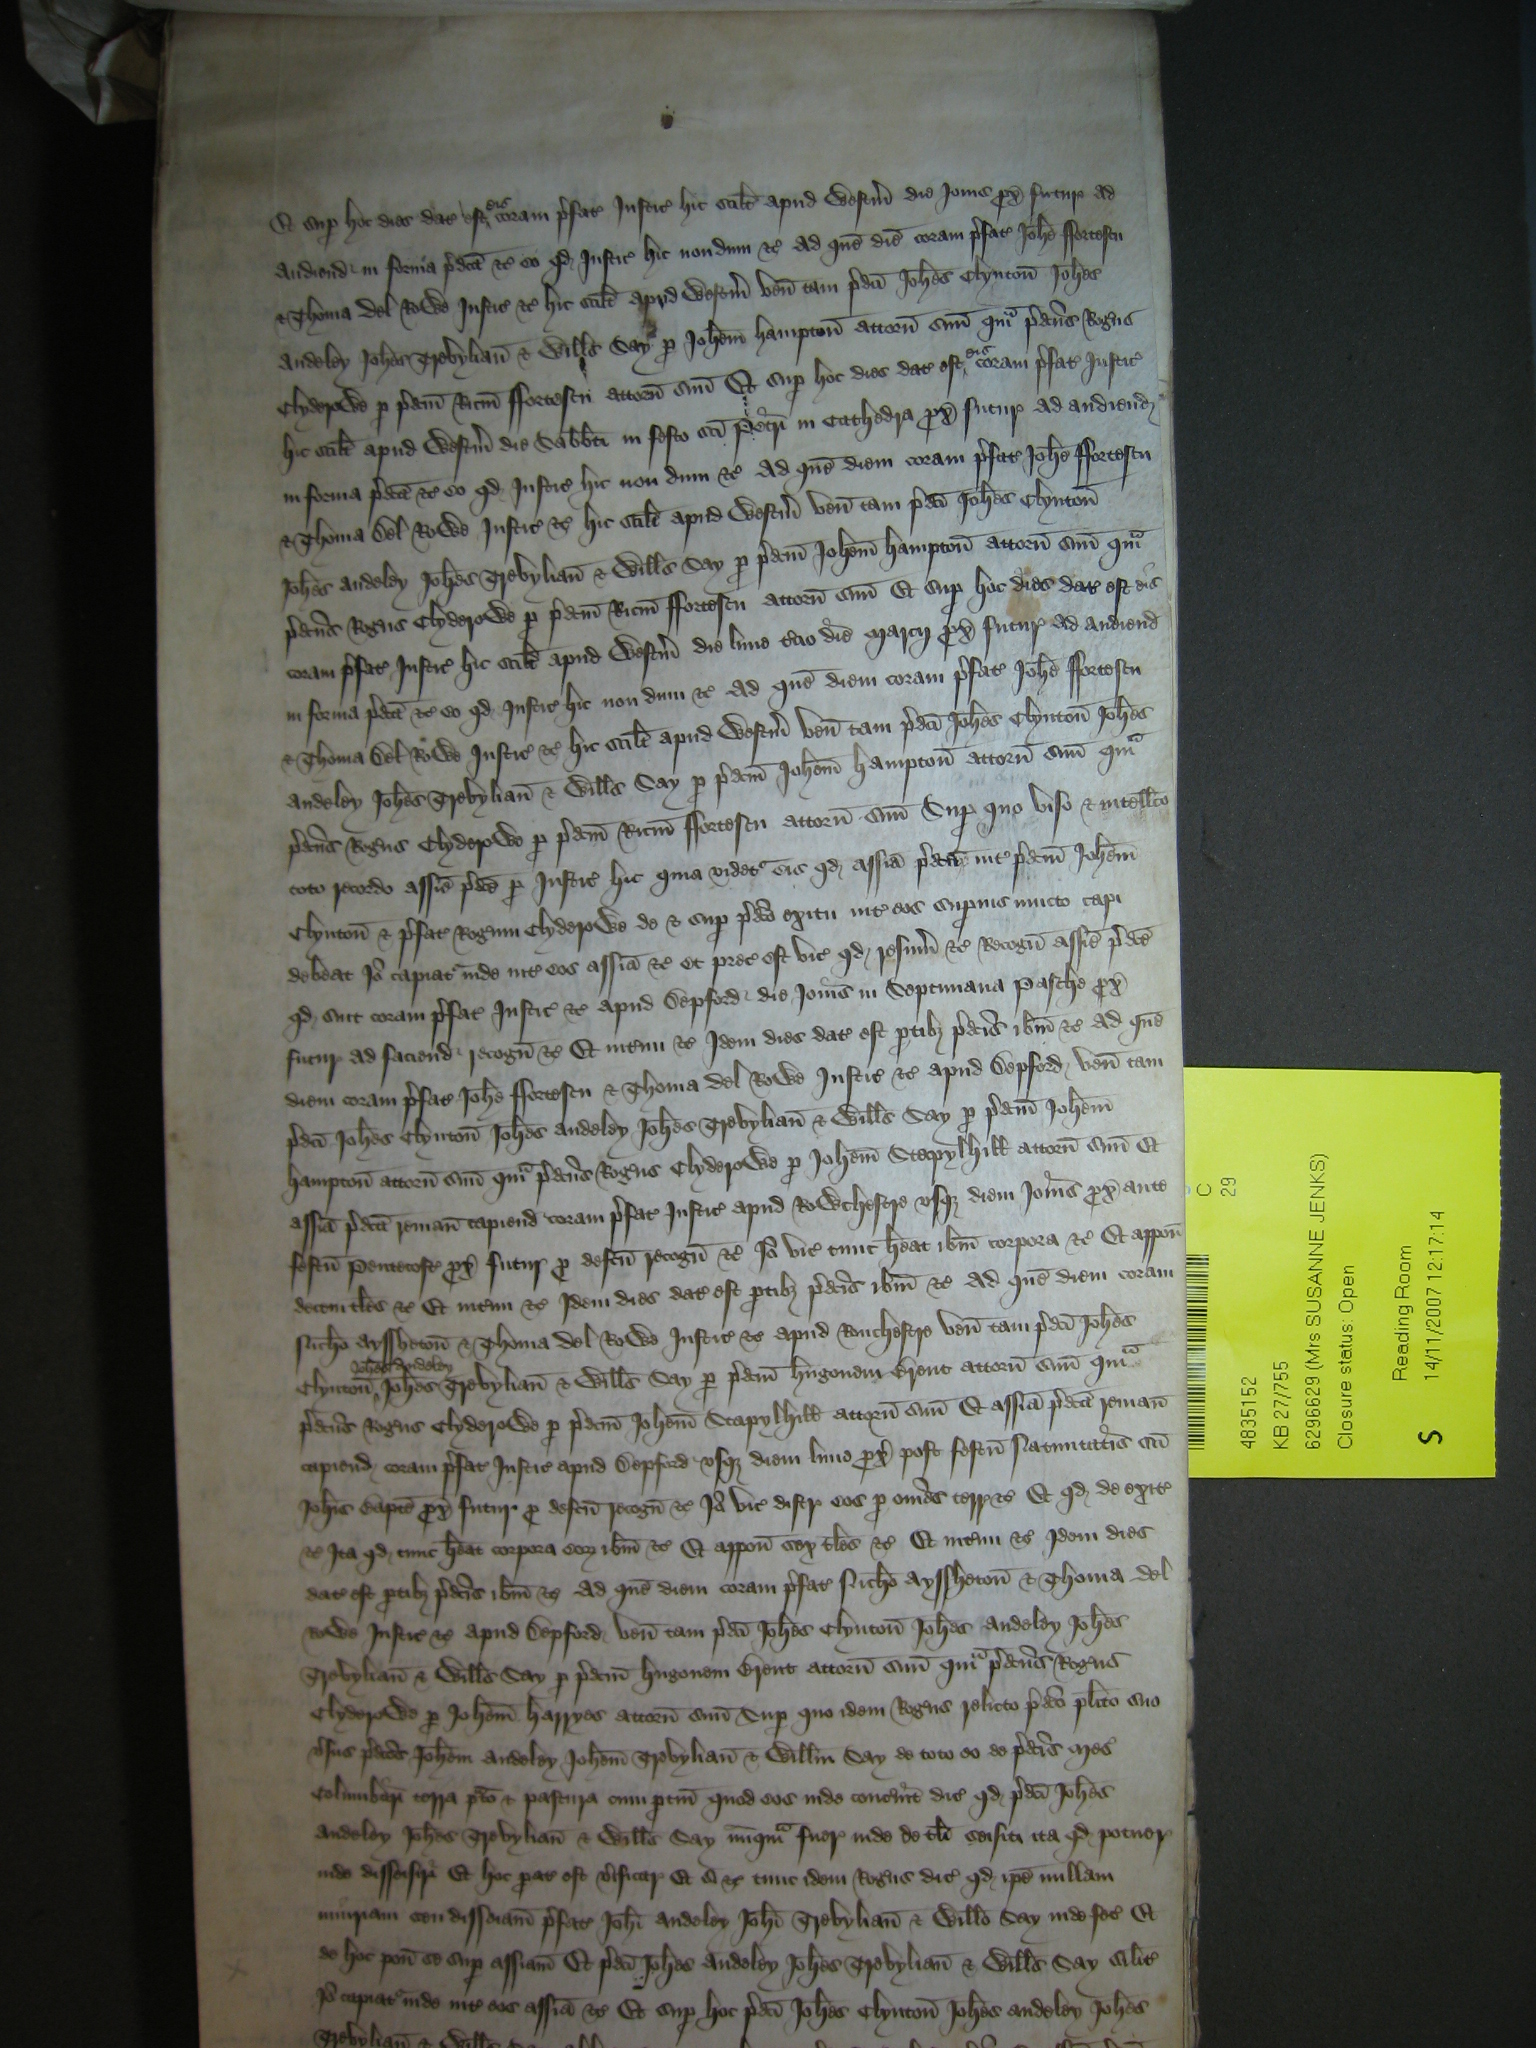 Et sup hoc dies dat est eis coram p̄fat Justic hic scilt apud Westm̄ die Jovis px̄ futur ad
audiend in forma p̄dcā &c eo qd Justic hic nondum &c Ad quē diē coram p̄fat Joh̄e ffortescu
& Thoma del Rowe Justic &c hic scilt apud Westm̄ ven̄ tam p̄dci Joh̄es Clynton̄ Joh̄es
Audeley Joh̄es Trebylian̄ & Will̄s Say p Joh̄em hampton̄ attorn̄ suū qm̄ p̄dcūs Roḡus
Clyderowe p p̄dcm̄ Ric̄m ffortescu attorn̄ suū Et sup hoc dies dat est eis coram p̄fat Justic
hic scilt apud Westm̄ die Sabb̄ti in festo sc̄i Petri in Cathedra px̄ futur ad audiend
in forma p̄dcā &c eo qd Justic hic non dum &c Ad quē diem coram p̄fat Joh̄e ffortescu
& Thoma del Rowe Justic &c hic scilt apud Westm̄ ven̄ tam p̄dci Joh̄es Clynton̄
Joh̄es Audeley Joh̄es Trebylian̄ & Will̄s Say p p̄dcm̄ Joh̄em hampton̄ attorn̄ suū qm̄
p̄dcūs Roḡus Clyderowe p p̄dcm̄ Ric̄m ffortescu attorn̄ suū Et sup hoc dies dat est eis
coram p̄fat Justic hic scilt apud Westm̄ die lune tcio die Marcij px̄ futur ad audiend
in forma p̄dcā &c eo qd Justic hic non dum &c Ad quē diem coram p̄fat Joh̄e ffortescu
& Thoma del Rowe Justic &c hic scilt apud Westm̄ ven̄ tam p̄dci Joh̄es Clynton̄ Joh̄es
Audeley Joh̄es Trebylian̄ & Will̄s Say p p̄dcm̄ Joh̄em hampton̄ attorn̄ suū qm̄
p̄dcūs Roḡus Clyderowe p p̄dcm̄ Ric̄m ffortescu attorn̄ suū Sup quo viso & intell̄co
toto recordo assīe p̄dcē p Justic hic quia videt eis qd assīa p̄dcā int p̄dcm̄ Joh̄em
Clynton̄ & p̄fat Roḡum Clyderowe de & sup p̄dco exitu int eos supius iuncto capi
debeat Jō capiat inde int eos assīa &c et prec est vic qd resum̄ &c Recogn̄ assīe p̄dcē
qd sint coram p̄fat Justic &c apud Depford die Jovis in Septimana Pasche px̄
futur ad faciend recogn̄ &c Et int̄im &c Idem dies dat est ptib; p̄dcis ib̄m &c Ad quē
diem coram p̄fat Joh̄e ffortescu & Thoma del Rowe Justic &c apud Depford ven̄ tam
p̄dci Joh̄es Clynton̄ Joh̄es Audeley Joh̄es Trebylian̄ & Will̄s Say p p̄dcm̄ Joh̄em
hampton̄ attorn̄ suū qm̄ p̄dcūs Roḡus Clyderowe p Joh̄em Stapylhill attorn̄ suū Et
assīa p̄dcā reman̄ capiend coram p̄fat Justic apud Rowchestre usq; diem Jovis px̄ ante
festū Pentecost px̄ futur p defcū recogn̄ &c Jō vic tunc h̄eat ib̄m corpora &c Et appon̄
decem tles &c Et int̄im &c Idem dies dat est ptib; p̄dcis ib̄m &c Ad quē diem coram
Nicho Ayssheton̄ & Thoma del Rowe Justic &c apud Rouchestre ven̄ tam p̄dci Joh̄es
Clynton̄ Joh̄es Audeley Joh̄es Trebylian̄ & Will̄s Say p p̄dcm̄ hugonem Brent attorn̄ suū qm̄
p̄dcūs Roḡus Clyderowe p p̄dcm̄ Joh̄em Stapylhill attorn̄ suū Et assīa p̄dcā reman̄
capiend coram p̄fat Justic apud Depford usq; diem lune px̄ post festū Nativitatis sc̄i
Joh̄is Bapt̄e px̄ futur p defcū recogn̄ &c Jō vic distr eos p om̄es terr &c Et qd de exit
&c Ita qd tunc h̄eat corpora eor ib̄m &c Et appon̄ sex tles &c Et int̄im &c Idem dies
dat est ptib; p̄dcis ib̄m &c Ad quē diem coram p̄fat Nicho Aysheton̄ & Thoma del
Rowe Justic &c apud Depford ven̄ tam p̄dci Joh̄es Clynton̄ Joh̄es Audeley Joh̄es
Trebylian̄ & Will̄s Say p p̄dcm̄ hugonem Brent attorn̄ suū qm̄ p̄dcūs Roḡus
Clyderowe p Joh̄em harryes attorn̄ suū Sup quo idem Roḡus relicto p̄dco pl̄ito suo
v̄sus p̄dcos Joh̄em Audeley Joh̄em Trebylian̄ & Willm̄ Say de toto eo de p̄dcis mes
columbar terra p̄to & pastura cum ptin̄ quod eos inde concn̄it dic qd p̄dci Joh̄es
Audeley Joh̄es Trebylian̄ & Will̄s Say nūqm̄ fuer inde de tli seisiti ita qd potuer
inde disseisiri Et hoc pat est v̄ificar Et si &c tunc idem Roḡus dic qd ip̄e nullam
iniuriam seu disseiam̄ p̄fat Joh̄i Audeley Joh̄i Trebylian̄ & Will̄o Say inde fec Et
de hoc pon̄ se sup assīam Et p̄dci Joh̄es Audeley Joh̄es Trebylian̄ & Will̄s Say silit
Jō capiat inde int eos assīa &c Et sup hoc p̄dci Joh̄es Clynton̄ Joh̄es Audeley Joh̄es
Trebylian̄ & Will̄s
4835152
KB 27/755
6296629 (Mrs SUSANNE JENKS)
Closure status: Open
C
29
Reading Room
S 14/11/2007 12:17:14